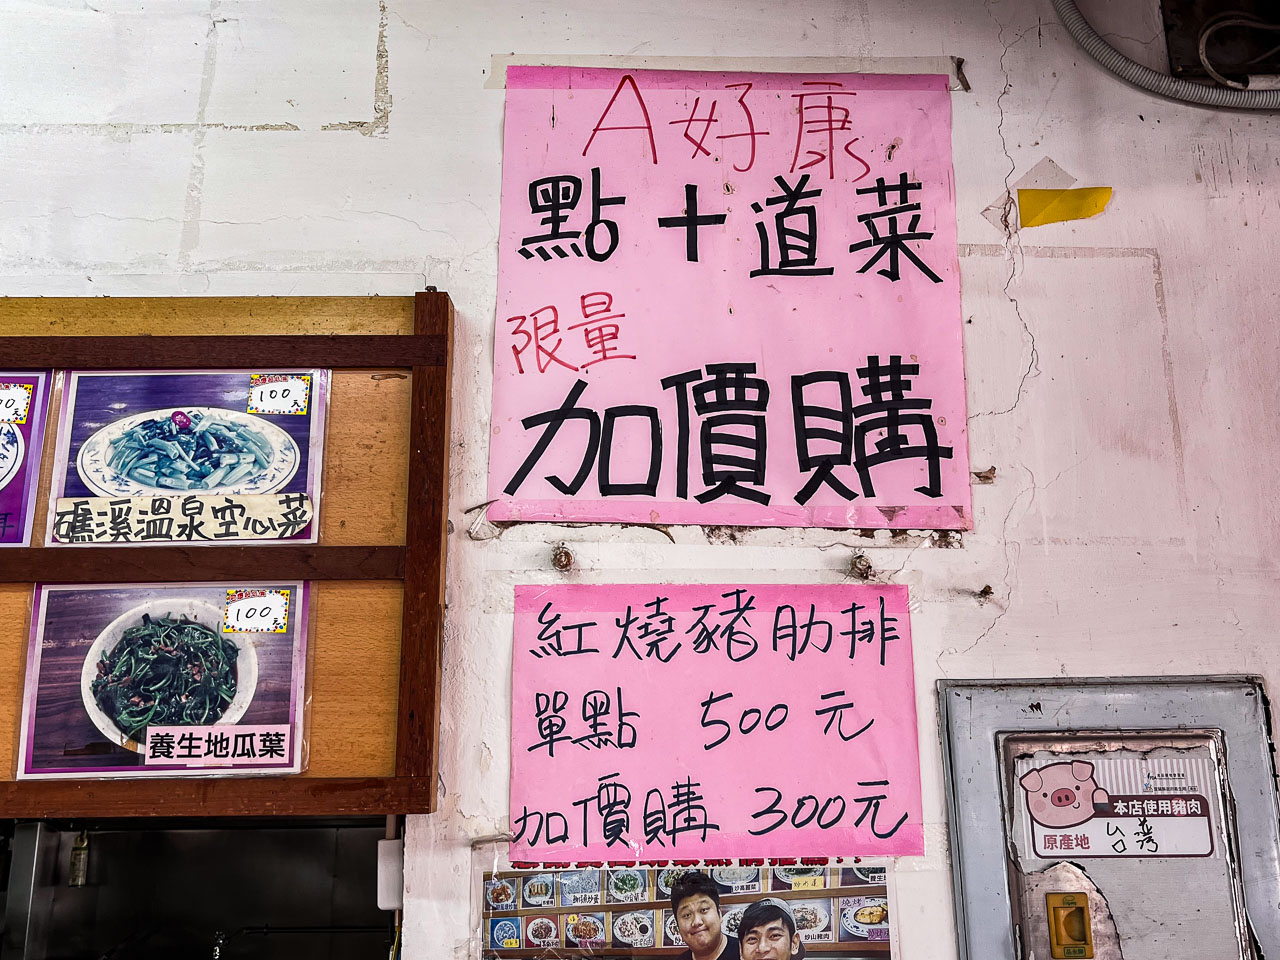 A好康
點十道菜
限量
加價購
100元
礁溪溫泉空心菜
100元
養生地瓜葉
紅燒豬肋排
單點 500元
加價購 300元
本店使用豬肉
原產地 台灣